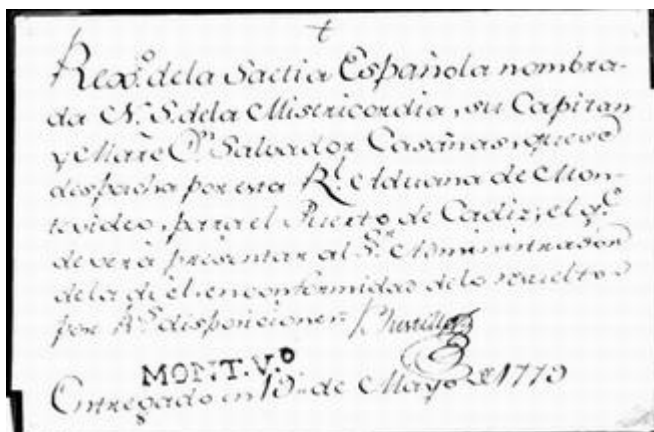 Rexo. de la Saetia Española nombra-
da N. S. de la Misericordia, su Capitan
y Mãre Dn. Salvador Casañas, que se
despacha por esta Rl. Aduana de Mon-
tevideo, para el Puerto de Cadiz; el qe.
deverá presentar al Sr. Administrador
de la de él, en conformidad de lo resuelto
por Rs. disposiciones
MONT.Vo
Entregado en 15 de Mayo de 1779